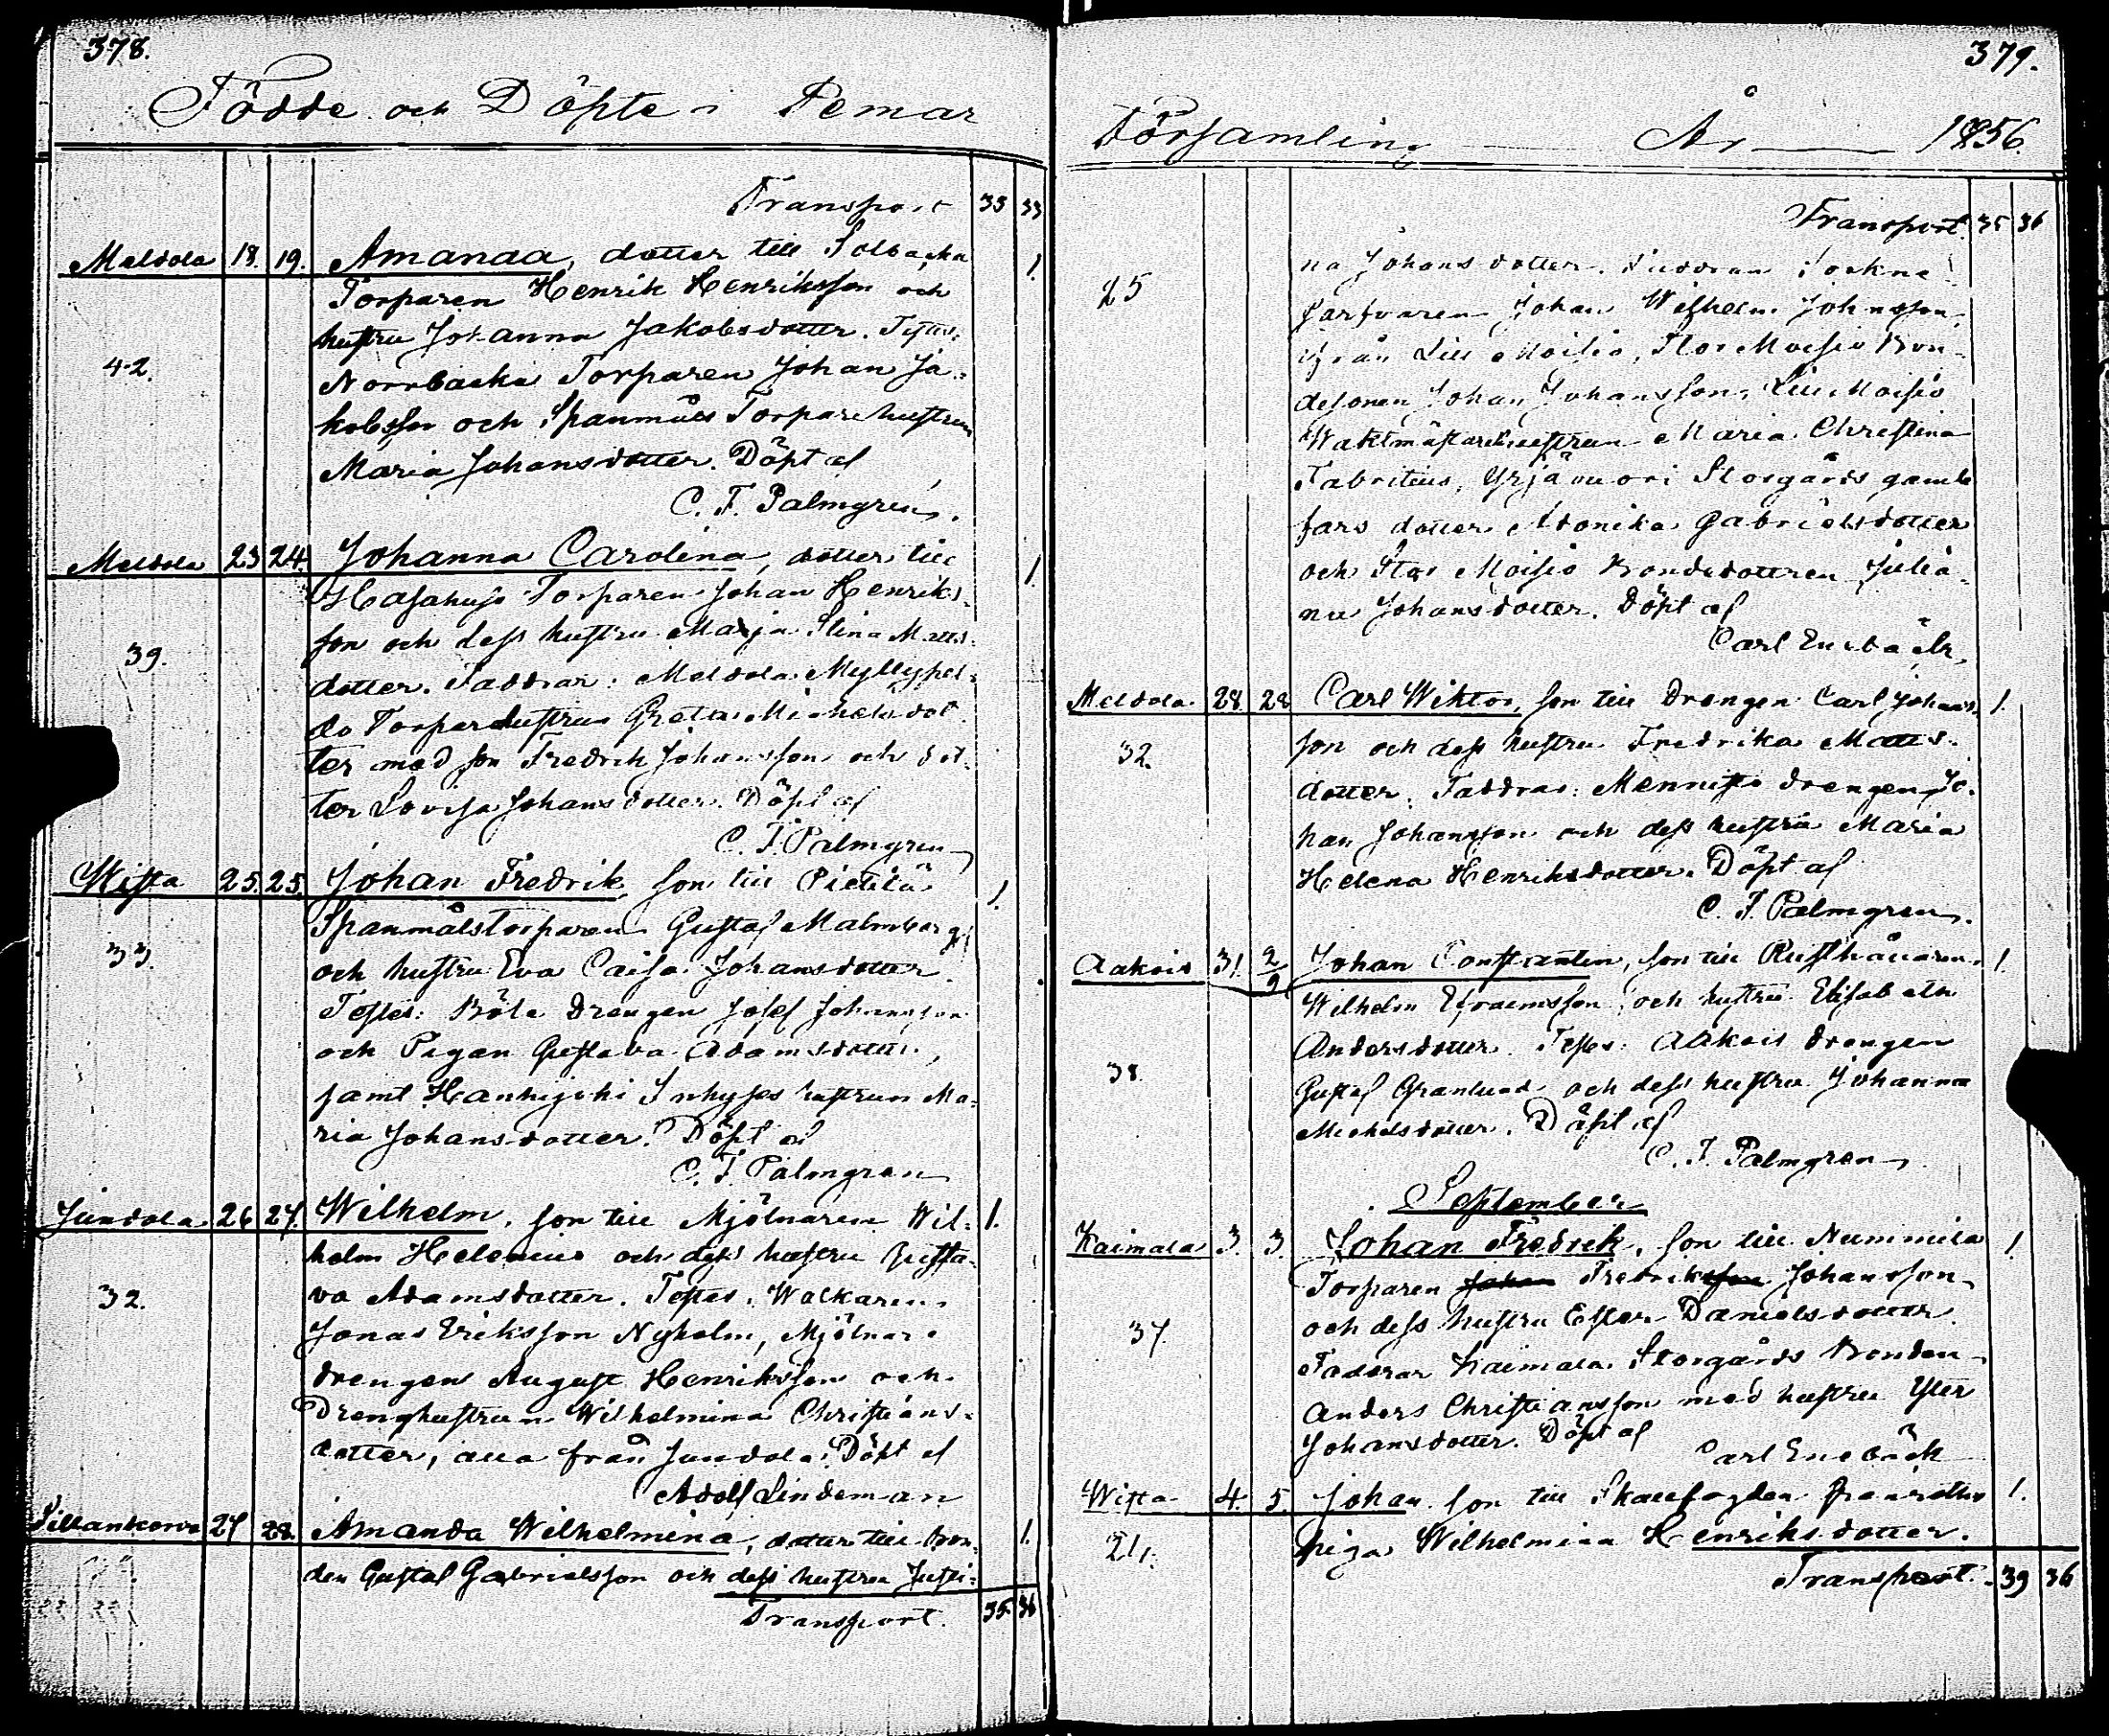 378.
Födde och Döpte i Pemar
Transport 33 33
Meldola 18. 19. Amanda, dotter till Solbacka 1.
Torparen Henrik Henriksson och
hustru Johanna Jakobsdotter. Testes:
42. Norrbacka Torparen Johan Ja-
kobsson och Spanmåls Torparehustrun
Maria Johansdotter. Döpt af
C. F. Palmgren.
Meldola 23 24. Johanna Carolina, dotter till 1.
Torparen Johan Henriks-
son och dess hustru Maja Stina Matts-
39. dotter. Faddrar: Meldola Myllypel-
do Torparehustrun Greta Michelsdot-
ter med son Fredrik Johansson och dot-
ter Lovisa Johansdotter. Döpt af
C. F. Palmgren
Wista 25. 25. Johan Fredrik, son till Pietilä 1.
Spanmålstorparen Gustaf Malmberg
33. och hustru Eva Caisa Johansdotter
Testes: Böle Drengen Josef Johansson
och Pigan Gustava Adamsdotter,
samt Hankijoki Inhyses hustrun Ma-
ria Johansdotter. Döpt af
C. F. Palmgren
Jundola 26 27. Wilhelm, son till Mjölnaren Wil- 1.
helm Helenius och dess hustru Gusta-
va Adamsdotter. Testes: Walkaren
32. Jonas Eriksson Nyholm, Mjölnare
drengen August Henriksson och
Drenghustrun Wilhelmina Christians-
dotter, alla från Jundola. Döpt af
Adolf Lindeman
27 28. Amanda Wilhelmina, dotter till Bon- 1.
den Gustaf Gabrielsson och dess hustru Justi-
Transport. 35. 36
379.
Församling År 1856.
Transport. 35 36
na Johansdotter. Faddrar Sockne
25 farfvaren Johan Wilhelm Johnsson,
ifrån Lill Moisio, Stor Moisio Bon-
desonen Johan Johansson, Lill Moisio
Waktmästarehustrun Maria Christina
Fabritius, Yrjänvuori Storgårds gamle
fars dotter Monika Gabrielsdotter
och Stor Moisio Bondedottren Julia-
na Johansdotter. Döpt af
Carl Enebäck
Meldola 28. 28 Carl Wiktor, son till Drengen Carl Johans- 1.
32. son och dess hustru Fredrika Matts-
dotter. Faddrar: drengen Jo-
han Johansson och dess hustru Maria
Helena Henriksdotter. Döpt af
C. F. Palmgren.
Aakois 31. 2/9 Johan Constantin, son till Rusthållaren 1.
Wilhelm Efraemsson och hustru Elisabeth
Andersdotter. Testes: Aakois drengen
38. Gustaf Granlund och dess hustru Johanna
Michelsdotter. Döpt af
C. F. Palmgren
September
Kaimala 3. 3. Johan Fredrik, son till Nummila 1.
Torparen Johan Fredriksson Johansson
37. och dess hustru Ester Danielsdotter.
Faddrar Kaimala Storgårds Bonden
Anders Christiansson med hustru
Johansdotter. Döpt af Carl Enebäck
Wista 4. 5. Johan son till 1.
21. piga Wilhelmina Henriksdotter.
Transport. 39 36